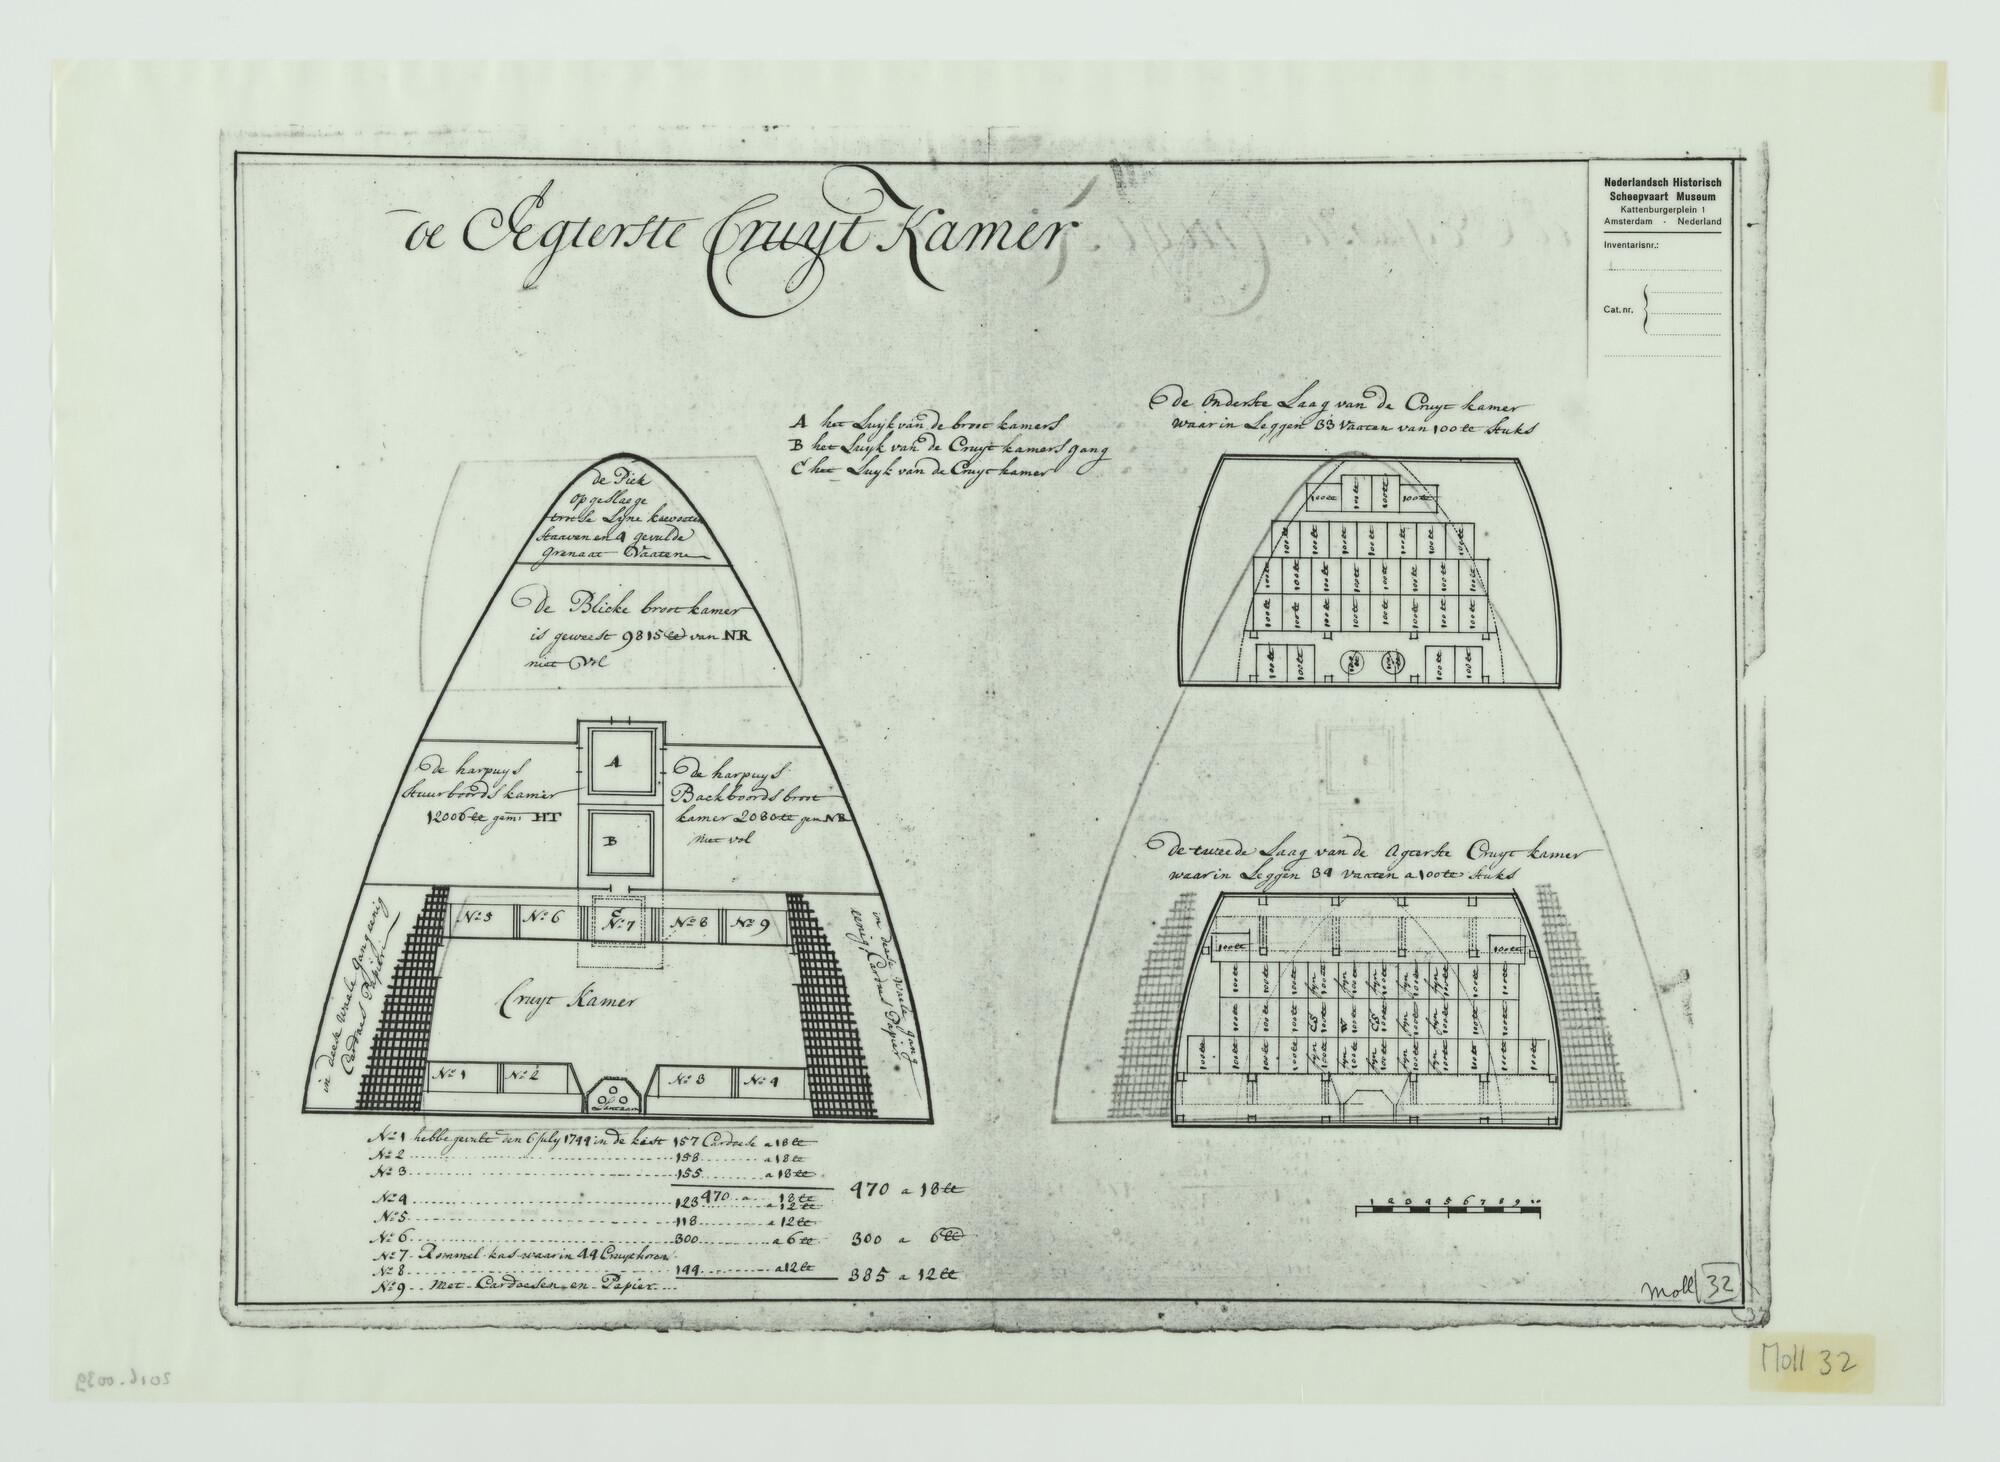 de Aegterste Cruyt Kamer
Nederlandsch Historisch
Scheepvaart Museum
Kattenburgerplein 1
Amsterdam - Nederland
Inventarisnr.:
Cat. nr.
A het Luyk van de broot kamers
B het Luyk van de Cruyt kamers gang
C het Luyk van de Cruyt kamer
De Onderste Laag van de Cruyt kamer
waar in Leggen 33 Vaaten van 100 lb stuks
de Piek
opgeslaege
Lyne
staaven en 4 gevulde
grenaat Vaaten
De Blicke broot kamer
is geweest 9815 lb van NR
niet Vol
A
De harpuys
stuurboords kamer
12006 lb gem: HT
De harpuys
Backboords broot
kamer 2080 lb gem NR
niet vol
B
De tweede Laag van de Agterste Cruyt kamer
waar in Leggen 34 Vaaten a 100 lb stuks
No 5
No 6
C
No 7
No 8
No 9
Cruyt Kamer
No 1
No 2
No 3
No 4
Lantaarn
No 1 hebbe gevult den 6 July 1744 in de kast 157 Cardoese a 18 lb
No 2 158 a 18 lb
No 3 155 a 18 lb
470 a 18 lb
470 a 18 lb
No 4 123 a 12 lb
No 5 118 a 12 lb
No 6 300 a 6 lb
300 a 6 lb
No 7 Rommel kas waar in 44 Cruythoren
No 8 144 a 12 lb
385 a 12 lb
No 9 met Cardoesen en Papier
1 2 3 4 5 6 7 8 9 10
Moll 32
Moll 32
2016.0039